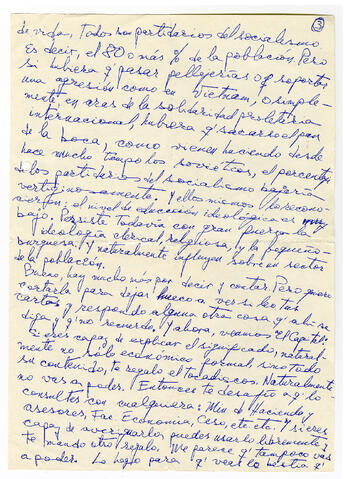 3
de vida, todos son partidarios del socialismo.
Es decir, el 80 o más % de la población. Pero
si hubiera q' pasar pellejerías o q' soportar
una agresión como en Vietnam, o simple-
mente, en aras de la solidaridad proletaria
internacional, hubiera q' sacarse el pan
de la boca, como vienen haciendo desde
hace mucho tiempo los soviéticos, el porcentaje
de los partidarios del socialismo bajaría
vertiginosamente. Y ellos mismos lo recono-
cen: el nivel de educación ideológica es muy
bajo. Persiste todavía con gran fuerza la
ideología clerical, religiosa, y la pequeño-
burguesa, y naturalmente influyen sobre un sector
de la población.
Bueno, hay mucho más por decir y contar. Pero quiero
cortarla para dejar hueco a ver si leo tus
cartas y respondo alguna otra cosa q' ahí se
diga y q' no recuerdo. Y ahora, veamos El Capital:
Si eres capaz de explicar el significado, natural-
mente no sólo económico formal, sino todo
su contenido, te regalo el tocadiscos. Naturalmente
no vas a poder. Entonces te desafío a q' lo
consultes con cualquiera: Min. de Hacienda y
asesores, Fac. Economía, Ceso, etc. etc. Y si eres
capaz de averiguarlo, puedes usarlo libremente y
te mando otro regalo. Me parece q' tampoco vas
a poder. Lo hago para q' veas lo bestia q'